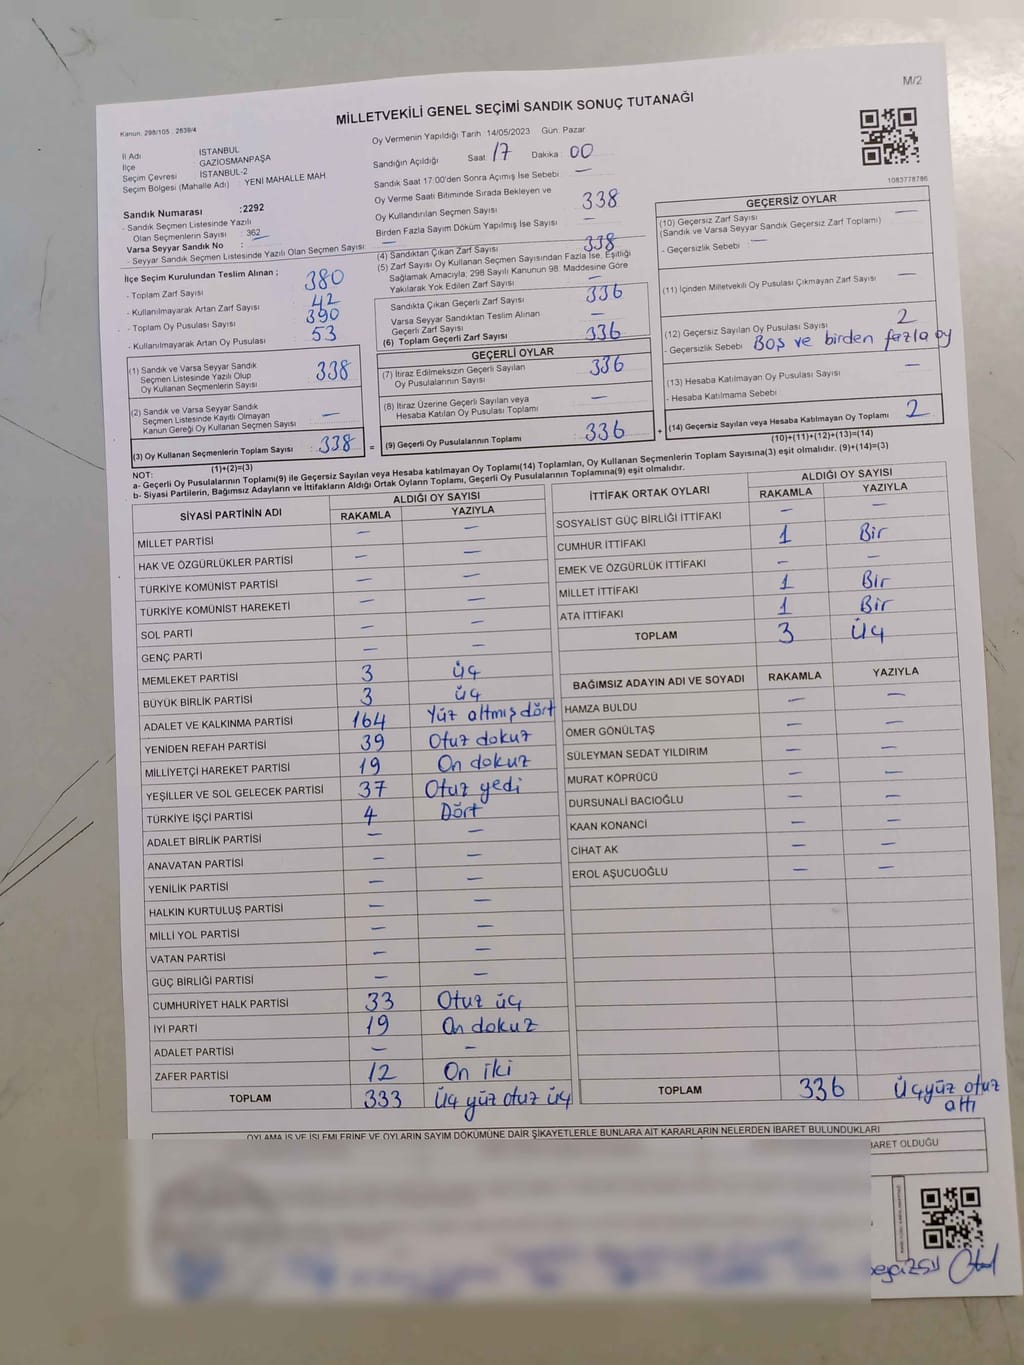 M/2
MİLLETVEKİLİ GENEL SEÇİMİ SANDIK SONUÇ TUTANAĞI
Kanun: 298/105 2839/4
İl Adı : İSTANBUL
İlçe : GAZİOSMANPAŞA
Seçim Çevresi : İSTANBUL-2
Seçim Bölgesi (Mahalle Adı) : YENİ MAHALLE MAH
Sandık Numarası :2292
- Sandık Seçmen Listesinde Yazılı
Olan Seçmenlerin Sayısı : 362
Varsa Seyyar Sandık No :
- Seyyar Sandık Seçmen Listesinde Yazılı Olan Seçmen Sayısı: —
Oy Vermenin Yapıldığı Tarih : 14/05/2023 Gün: Pazar
Sandığın Açıldığı Saat: 17 Dakika: 00
Sandık Saat 17:00'den Sonra Açımış İse Sebebi : —
Oy Verme Saati Bitiminde Sırada Bekleyen ve
Oy Kullandırılan Seçmen Sayısı : 338
Birden Fazla Sayım Döküm Yapılmış İse Sayısı : —
1083778786
İlçe Seçim Kurulundan Teslim Alınan ;
- Toplam Zarf Sayısı : 380
- Kullanılmayarak Artan Zarf Sayısı : 42
- Toplam Oy Pusulası Sayısı : 390
- Kullanılmayarak Artan Oy Pusulası : 53
(1) Sandık ve Varsa Seyyar Sandık
Seçmen Listesinde Yazılı Olup
Oy Kullanan Seçmenlerin Sayısı : 338
(2) Sandık ve Varsa Seyyar Sandık
Seçmen Listesinde Kayıtlı Olmayan
Kanun Gereği Oy Kullanan Seçmen Sayısı : —
(3) Oy Kullanan Seçmenlerin Toplam Sayısı : 338 =
(1)+(2)=(3)
(4) Sandıktan Çıkan Zarf Sayısı : 338
(5) Zarf Sayısı Oy Kullanan Seçmen Sayısından Fazla İse, Eşitliği
Sağlamak Amacıyla; 298 Sayılı Kanunun 98. Maddesine Göre
Yakılarak Yok Edilen Zarf Sayısı : —
Sandıkta Çıkan Geçerli Zarf Sayısı : 336
Varsa Seyyar Sandıktan Teslim Alınan
Geçerli Zarf Sayısı : —
(6) Toplam Geçerli Zarf Sayısı : 336
GEÇERLİ OYLAR
(7) İtiraz Edilmeksizin Geçerli Sayılan
Oy Pusulalarının Sayısı : 336
(8) İtiraz Üzerine Geçerli Sayılan veya
Hesaba Katılan Oy Pusulası Toplamı : —
(9) Geçerli Oy Pusulalarının Toplamı : 336 +
GEÇERSİZ OYLAR
(10) Geçersiz Zarf Sayısı : —
(Sandık ve Varsa Seyyar Sandık Geçersiz Zarf Toplamı)
- Geçersizlik Sebebi : —
(11) İçinden Milletvekili Oy Pusulası Çıkmayan Zarf Sayısı : —
(12) Geçersiz Sayılan Oy Pusulası Sayısı : 2
- Geçersizlik Sebebi : Boş ve birden fazla oy
(13) Hesaba Katılmayan Oy Pusulası Sayısı : —
- Hesaba Katılmama Sebebi :
(14) Geçersiz Sayılan veya Hesaba Katılmayan Oy Toplamı : 2
(10)+(11)+(12)+(13)=(14)
NOT:
a- Geçerli Oy Pusulalarının Toplamı(9) ile Geçersiz Sayılan veya Hesaba katılmayan Oy Toplamı(14) Toplamları, Oy Kullanan Seçmenlerin Toplam Sayısına(3) eşit olmalıdır. (9)+(14)=(3)
b- Siyasi Partilerin, Bağımsız Adayların ve İttifakların Aldığı Ortak Oyların Toplamı, Geçerli Oy Pusulalarının Toplamına(9) eşit olmalıdır.
SİYASİ PARTİNİN ADI ALDIĞI OY SAYISI
RAKAMLA YAZIYLA
MİLLET PARTİSİ — —
HAK VE ÖZGÜRLÜKLER PARTİSİ — —
TÜRKİYE KOMÜNİST PARTİSİ — —
TÜRKİYE KOMÜNİST HAREKETİ — —
SOL PARTİ — —
GENÇ PARTİ — —
MEMLEKET PARTİSİ 3 üç
BÜYÜK BİRLİK PARTİSİ 3 üç
ADALET VE KALKINMA PARTİSİ 164 Yüz altmış dört
YENİDEN REFAH PARTİSİ 39 Otuz dokuz
MİLLİYETÇİ HAREKET PARTİSİ 19 On dokuz
YEŞİLLER VE SOL GELECEK PARTİSİ 37 Otuz yedi
TÜRKİYE İŞÇİ PARTİSİ 4 Dört
ADALET BİRLİK PARTİSİ — —
ANAVATAN PARTİSİ — —
YENİLİK PARTİSİ — —
HALKIN KURTULUŞ PARTİSİ — —
MİLLİ YOL PARTİSİ — —
VATAN PARTİSİ — —
GÜÇ BİRLİĞİ PARTİSİ — —
CUMHURİYET HALK PARTİSİ 33 Otuz üç
İYİ PARTİ 19 On dokuz
ADALET PARTİSİ — —
ZAFER PARTİSİ 12 On iki
TOPLAM 333 Üç yüz otuz üç
İTTİFAK ORTAK OYLARI ALDIĞI OY SAYISI
RAKAMLA YAZIYLA
SOSYALİST GÜÇ BİRLİĞİ İTTİFAKI — —
CUMHUR İTTİFAKI 1 Bir
EMEK VE ÖZGÜRLÜK İTTİFAKI — —
MİLLET İTTİFAKI 1 Bir
ATA İTTİFAKI 1 Bir
TOPLAM 3 Üç
BAĞIMSIZ ADAYIN ADI VE SOYADI RAKAMLA YAZIYLA
HAMZA BULDU — —
ÖMER GÖNÜLTAŞ — —
SÜLEYMAN SEDAT YILDIRIM — —
MURAT KÖPRÜCÜ — —
DURSUNALİ BACIOĞLU — —
KAAN KONANCİ — —
CİHAT AK — —
EROL AŞUCUOĞLU — —
TOPLAM 336 Üçyüz otuz
altı
OYLAMA İŞ VE İŞLEMLERİNE VE OYLARIN SAYIM DÖKÜMÜNE DAİR ŞİKAYETLERLE BUNLARA AİT KARARLARIN NELERDEN İBARET BULUNDUKLARI
İBARET OLDUĞU